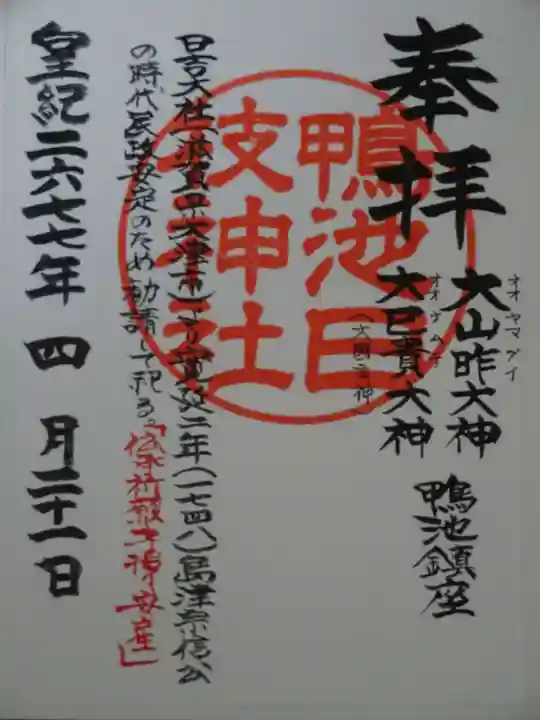 奉拝
大山咋大神
オオヤマグイ
大巳貴大神
オオナムチ
(大国主神)
鴨池鎮座
鴨池日
枝神社
日吉大社(滋賀県大津市)より寛延二年(一七四八)島津宗信公
の時代民政安定のため勧請して祀る。
安産」
皇紀二六七七年 四 月二十一日